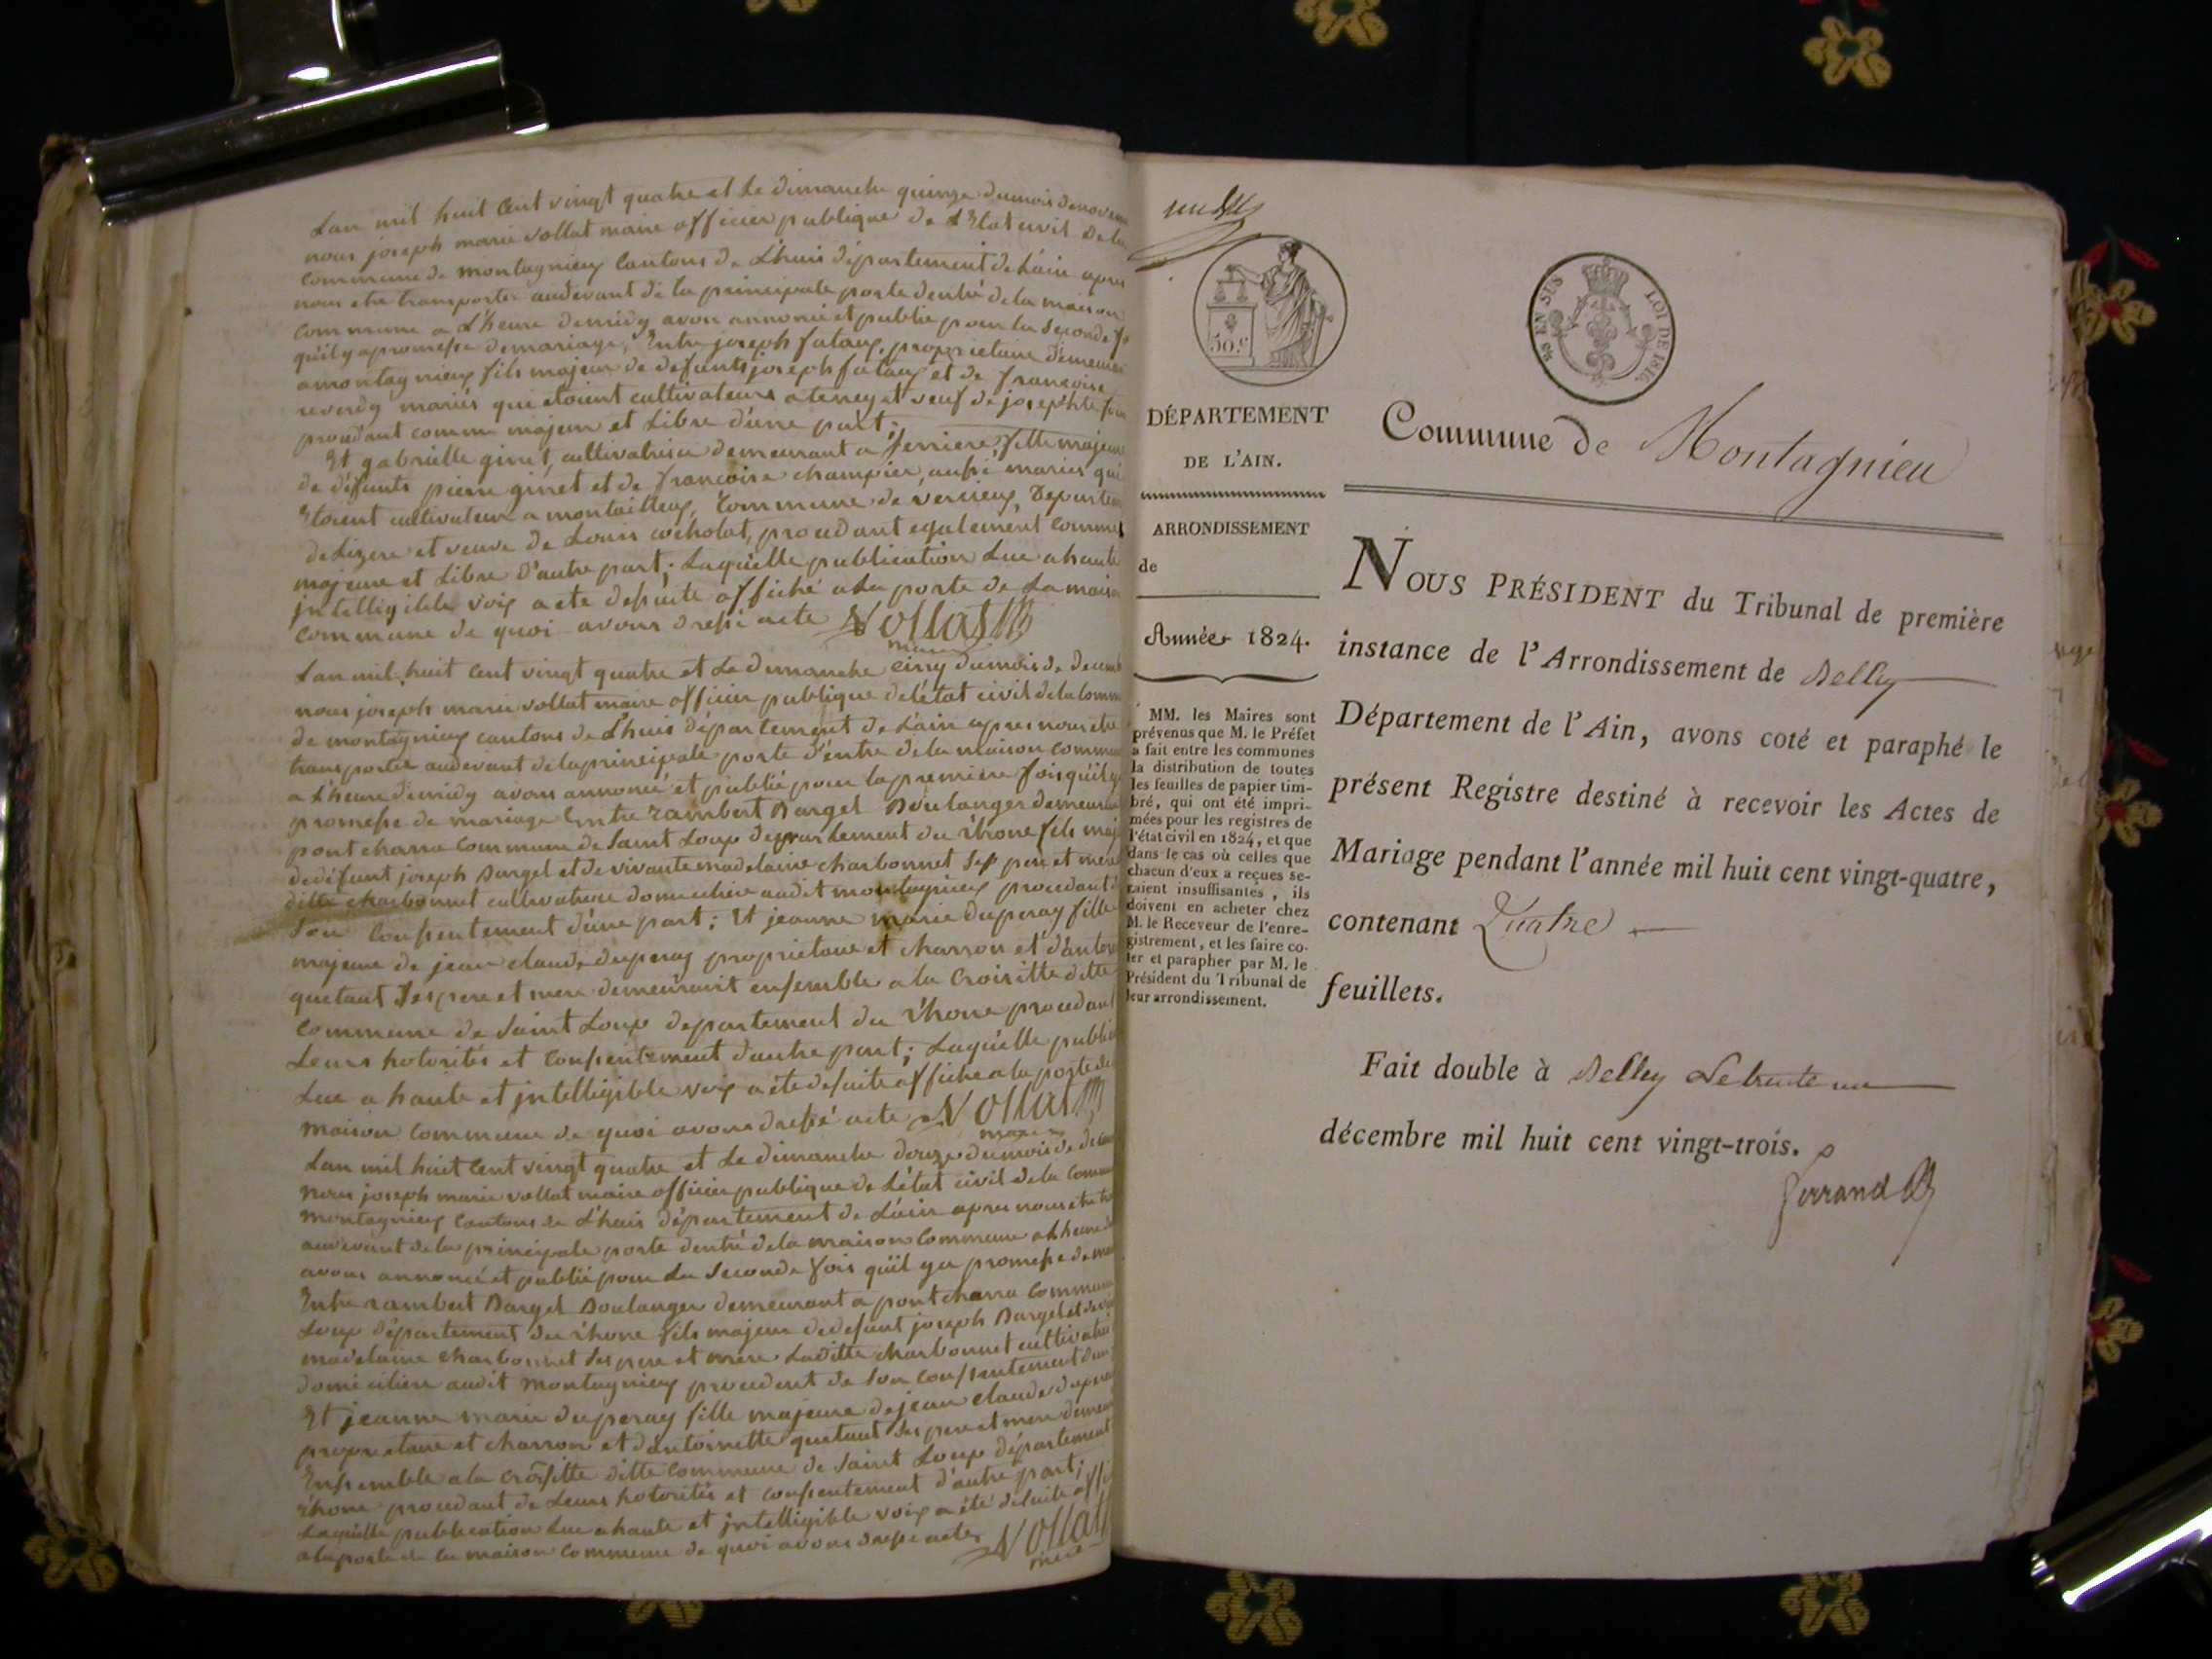 Lan mil huit Cent vingt quatre et Le dimanche quinze dumois denovem
nous joseph marie vollat maire officier publique de L'Etat civil dela
Commune de montagnieux Cantons de L'huis département de L'ain apres
nous etre transporter audevant de la principale porte dentré dela maison
Commune a L'heure demidy avon annoncé et publié pour la Seconde fo
quil y a promesse de mariage, Entre joseph fataux, proprietaire demeuran
a montagnieux fils majeur de defunts joseph fataux et de francoise
reverdy mariés qui etoient cultivateurs a tenay et veuf de josephte
procedant comme majeur et Libre d'une part;
Et gabrielle ginet, cultivatrice demeurant a ferriere, fille majeure
de défunts pierre ginet et de francoise champier, aussi mariés qui
Etoient cultivateur a montailleux, Commune de vercieux, Departem
de Lizere et veuve de Louis cocholat, procedant egalement comme
majeure et Libre d'autre part; Laquelle publication Lue a haute
intelligible voix a ete desuite affiché a La porte de La maison
Commune de quoi avons dressé acte Vollat
maire
Lan mil huit Cent vingt quatre et Le dimanche cinq dumois de decemb
nous joseph marie vollat maire officier publique deletat civil dela Comm
de montagnieux cantons de L'huis département de L'ain apres nous etre
transporter audevant dela principale porte d'entré dela maison commu
a L'heure demidy avons annoncé et publié pour la premiere fois quil y
promesse de mariage Entre rambert Bargel Boulanger demeurant
pontcharra Commune de Saint Loup departement du rhone fils maj
de défunt joseph Bargel et de vivante madelaine charbonnet ses pere et mere
ditte charbonnet cultivatrice domiciliée audit montagnieux procedant d
Son Consentement d'une part; Et jeanne marie duperay fille
majeure de jean claude duperay proprietaire et charron et d'antoin
quetant Ses pere et mere demeurant ensemble a la Croisette ditte
Commune de Saint Loup departement du rhone procedant
Leurs hotorités et Consentement d'autre part; Laquelle public
Lue a haute et intelligible voix a ete desuite affiché a la porte de
maison Commune de quoi avons dressé acte Vollat
maire
Lan mil huit Cent vingt quatre et Le dimanche douze dumois de decem
nous joseph marie vollat maire officier publique de L'état civil dela Commu
montagnieux Cantons de L'huis département de L'ain apres nous etre tr
audevant dela principale porte dentré dela maison Commune a L'heure de
avons annoncé et publié pour La Seconde fois quil ya promesse de mar
Entre rambert Bargel Boulanger demeurant a pontcharra Commune
Loup département du rhone fils majeur dedefunt joseph Bargel et de vi
madelaine charbonnet Ses pere et mere Laditte charbonnet cultivatri
domiciliée audit montagnieux procedent de Son Consentement d'un
Et jeanne marie duperay fille majeure de jean claude dupera
proprietaire et charron et d'antoinette quetant Ses pere et mere demeu
Ensemble a la Croisette ditte Commune de Saint Loup département
rhone procedant de Leurs hotorités et consentement d'autre part;
Laquelle publication Lue a haute et intelligible voix a été desuite affi
a la porte de la maison Commune de quoi avons dressé acte Vollat
maire
50.c
EN SUS
LOI DE 1816.
DÉPARTEMENT
DE L'AIN.
ARRONDISSEMENT
de
Année 1824.
MM. les Maires sont
prévenus que M. le Préfet
a fait entre les communes
la distribution de toutes
les feuilles de papier tim-
bré, qui ont été impri-
mées pour les registres de
l'état civil en 1824, et que
dans le cas où celles que
chacun d'eux a reçues se-
raient insuffisantes, ils
doivent en acheter chez
M. le Receveur de l'enre-
gistrement, et les faire co-
ter et parapher par M. le
Président du Tribunal de
leur arrondissement.
Commune de Montagnieu
NOUS PRÉSIDENT du Tribunal de première
instance de l'Arrondissement de Belley
Département de l'Ain, avons coté et paraphé le
présent Registre destiné à recevoir les Actes de
Mariage pendant l'année mil huit cent vingt-quatre,
contenant Quatre
feuillets.
Fait double à Belley Le trente un
décembre mil huit cent vingt-trois.
Ferrand